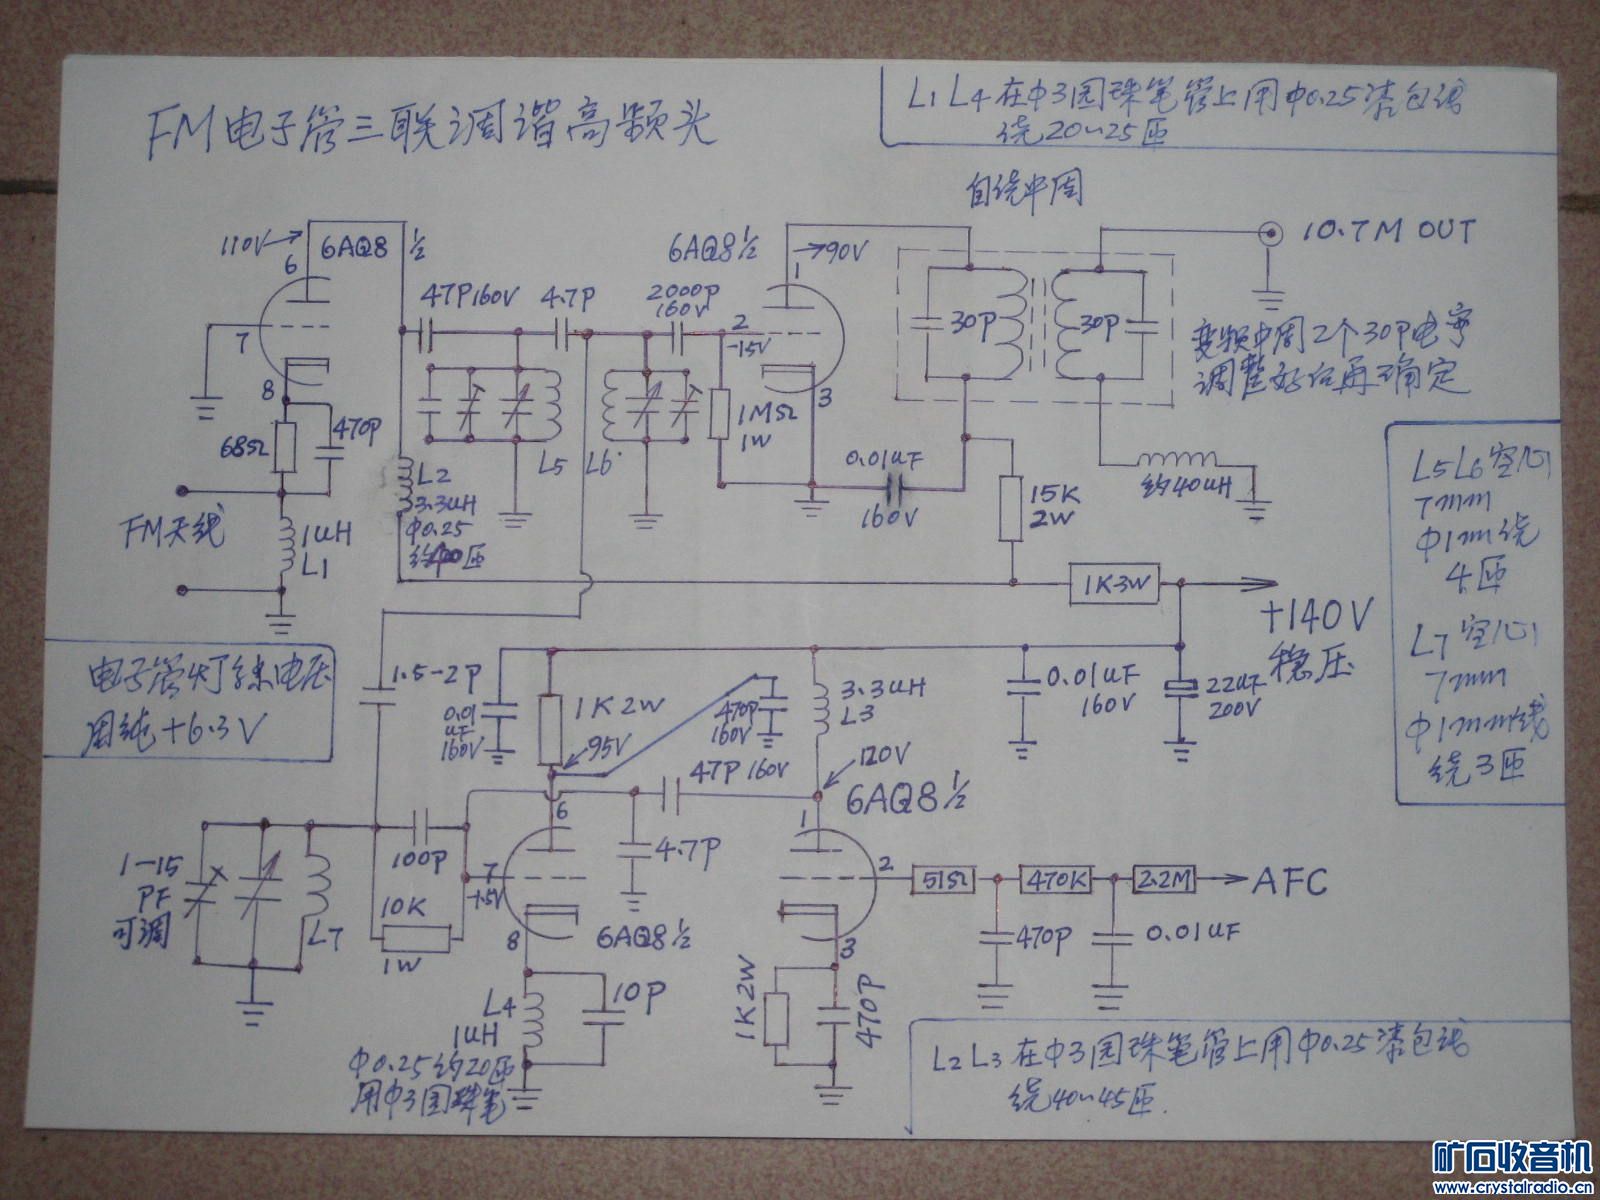 FM电子管三联调谐高频头
L1 L4 在Φ3园珠笔管上用Φ0.25漆包线
绕20~25匝
自绕中周
110V
6AQ8 1/2
6
7
8
68Ω
470P
FM天线
1uH
L1
47P160V
4.7P
2000P
160V
L2
3.3uH
Φ0.25
L5
L6
6AQ8 1/2
90V
1
2
-1.5V
3
1MΩ
1W
0.01uF
160V
30P
30P
10.7M OUT
变频中周2个30P电容
调整好后再确定
约40uH
15K
2W
1K3W
+140V
稳压
L5L6空心
7mm
Φ1mm绕
4匝
L7空心
7mm
Φ1mm线
绕3匝
电子管灯丝电压
用纯+6.3V
1.5-2P
0.01
uF
160V
1K2W
95V
470P
160V
3.3uH
L3
0.01uF
160V
22uF
200V
47P160V
120V
6AQ8 1/2
1
2
3
1-15
PF
可调
L7
100P
10K
1W
6
7
-1.5V
8
4.7P
6AQ8 1/2
L4
1uH
Φ0.25约20匝
用Φ3园珠笔
10P
1K2W
470P
51Ω
470K
2.2M
AFC
470P
0.01uF
L2 L3 在Φ3园珠笔管上用Φ0.25漆包线
绕40~45匝.
矿石收音机
www.crystalradio.cn